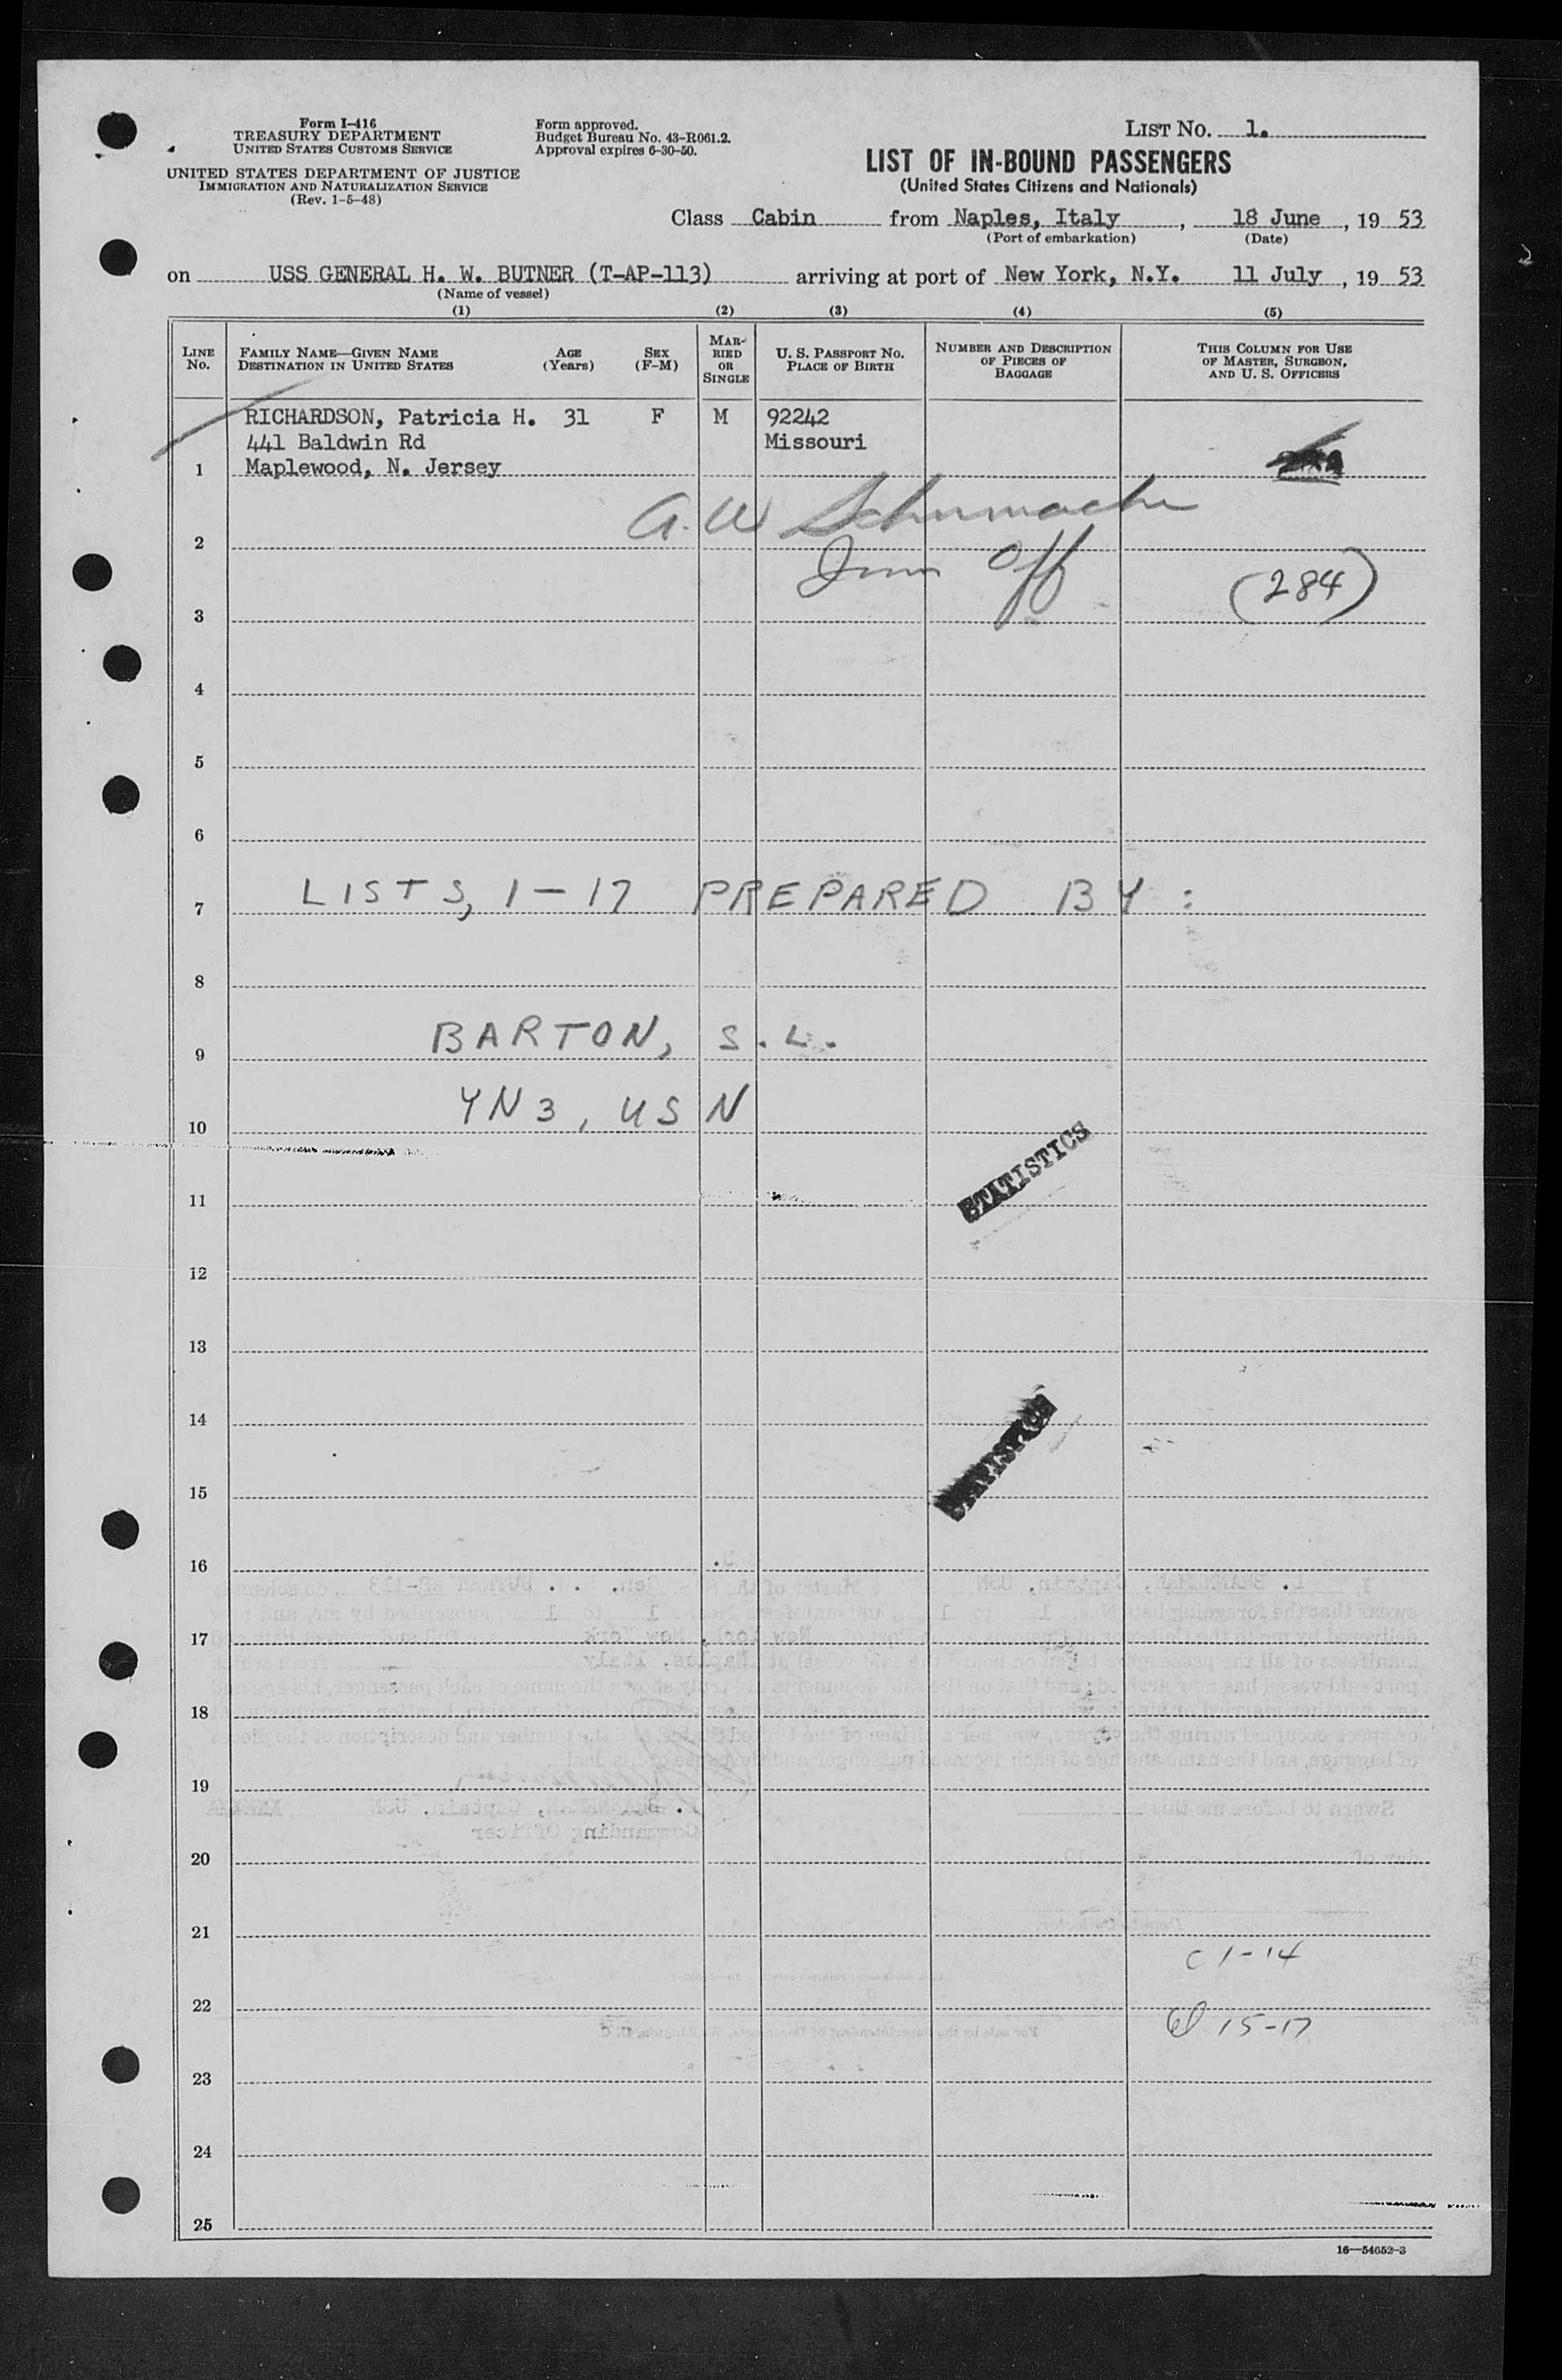 Form I-416
TREASURY DEPARTMENT
UNITED STATES CUSTOMS SERVICE
UNITED STATES DEPARTMENT OF JUSTICE
IMMIGRATION AND NATURALIZATION SERVICE
(Rev. 1-5-48)
Form approved.
Budget Bureau No. 43-R061.2.
Approval expires 6-30-50.
LIST NO. 1.
LIST OF IN-BOUND PASSENGERS
(United States Citizens and Nationals)
Class Cabin from Naples, Italy, 18 June, 19 53
(Port of embarkation) (Date)
on USS GENERAL H. W. BUTNER (T-AP-113) arriving at port of New York, N.Y. 11 July, 19 53
(Name of vessel)
(1) (2) (3) (4) (5)
LINE NO.
FAMILY NAME—GIVEN NAME
DESTINATION IN UNITED STATES
AGE
(Years)
SEX
(F-M)
MAR-
RIED
OR
SINGLE
U. S. PASSPORT NO.
PLACE OF BIRTH
NUMBER AND DESCRIPTION
OF PIECES OF
BAGGAGE
THIS COLUMN FOR USE
OF MASTER, SURGEON,
AND U. S. OFFICERS
RICHARDSON, Patricia H. 31 F M 92242
441 Baldwin Rd Missouri
1 Maplewood, N. Jersey
A. W Schumache
2
Imm Off
(284)
3
4
5
6
7 LISTS, 1-17 PREPARED BY:
8
9 BARTON, S. L.
10 YN3, USN
STATISTICS
11
12
13
14
STATISTICS
15
16
17
18
19
20
21
C 1-14
22
15-17
23
24
25
16—54652-3